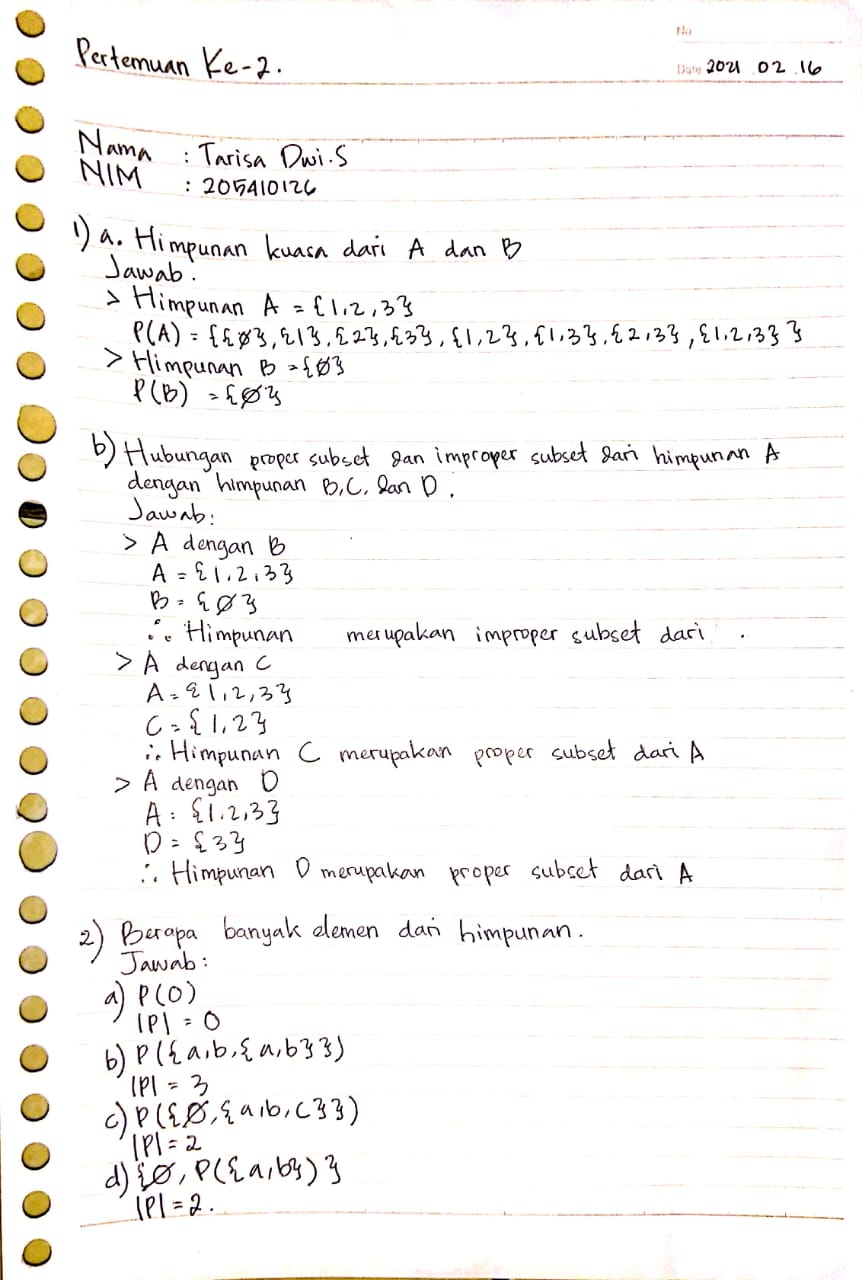 No
Pertemuan Ke-2.
Date 2021 02 16
Nama : Tarisa Dwi.S
NIM : 205410126
1) a. Himpunan kuasa dari A dan B
Jawab.
> Himpunan A = {1,2,3}
P(A) = {{Ø}, {1}, {2}, {3}, {1,2}, {1,3}, {2,3}, {1,2,3}}
> Himpunan B = {Ø}
P(B) = {Ø}
b) Hubungan proper subset dan improper subset dari himpunan A
dengan himpunan B,C, dan D.
Jawab:
> A dengan B
A = {1,2,3}
B = {Ø}
∴ Himpunan merupakan improper subset dari .
> A dengan C
A = {1,2,3}
C = {1,2}
∴ Himpunan C merupakan proper subset dari A
> A dengan D
A : {1,2,3}
D = {3}
∴ Himpunan D merupakan proper subset dari A
2) Berapa banyak elemen dari himpunan.
Jawab:
a) P(0)
|P| = 0
b) P({a,b,{a,b}})
|P| = 3
c) P({Ø,{a,b,c}})
|P| = 2
d) {Ø, P({a,b})}
|P| = 2.